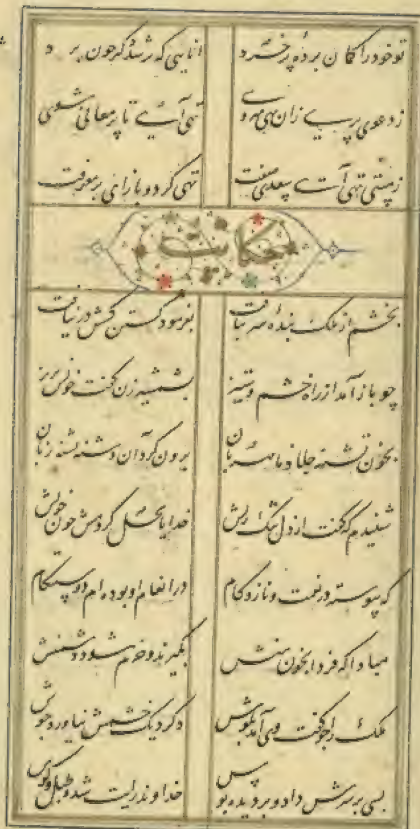 تو خود را گمان برده پر خرد انایی که پر شد دگر چون برد
ز دعوی پری زان تهی میروی تهی آی تا پر معانی شوی
ز هستی تهی آی سعدی صفت تهی گرد و باز آی پر معرفت
حکایت
بخشم از ملک بنده سر بتافت بفرمود جستن کسش در نیافت
چو باز آمد از راه خشم و ستیز بشمشیر زن گفت خونش بریز
بخون تشنه جلاد نامهربان برون کرد آن دشنه تشنه زبان
شنیدم که گفت از دل تنگ ریش خدایا بحل کردمش خون خویش
که پیوسته در نعمت و ناز و کام در انعام او بوده ام دوستکام
مبادا که فردا بخون منش بگیرند و خرم شود دشمنش
ملک را چو گفت وی آمد بگوش دگر دیک خشمش نیاورد جوش
بسی بر سرش داد و بر دیده بوس خداوند رایت شد و طبل و کوس